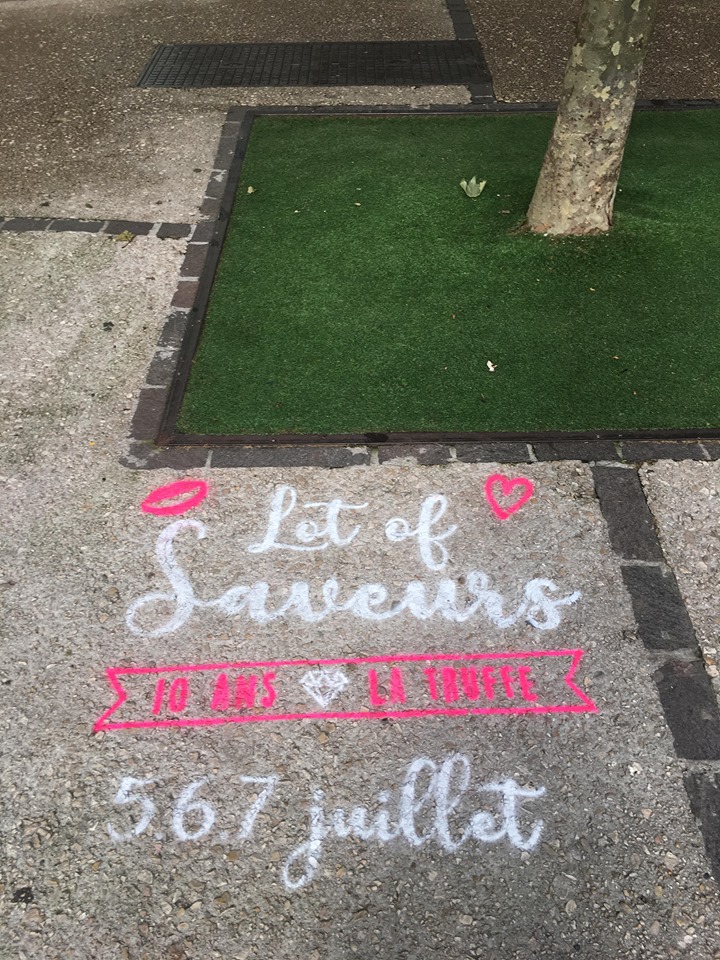 Lot of
Saveurs
10 ANS LA TRUFFE
5.6.7 juillet